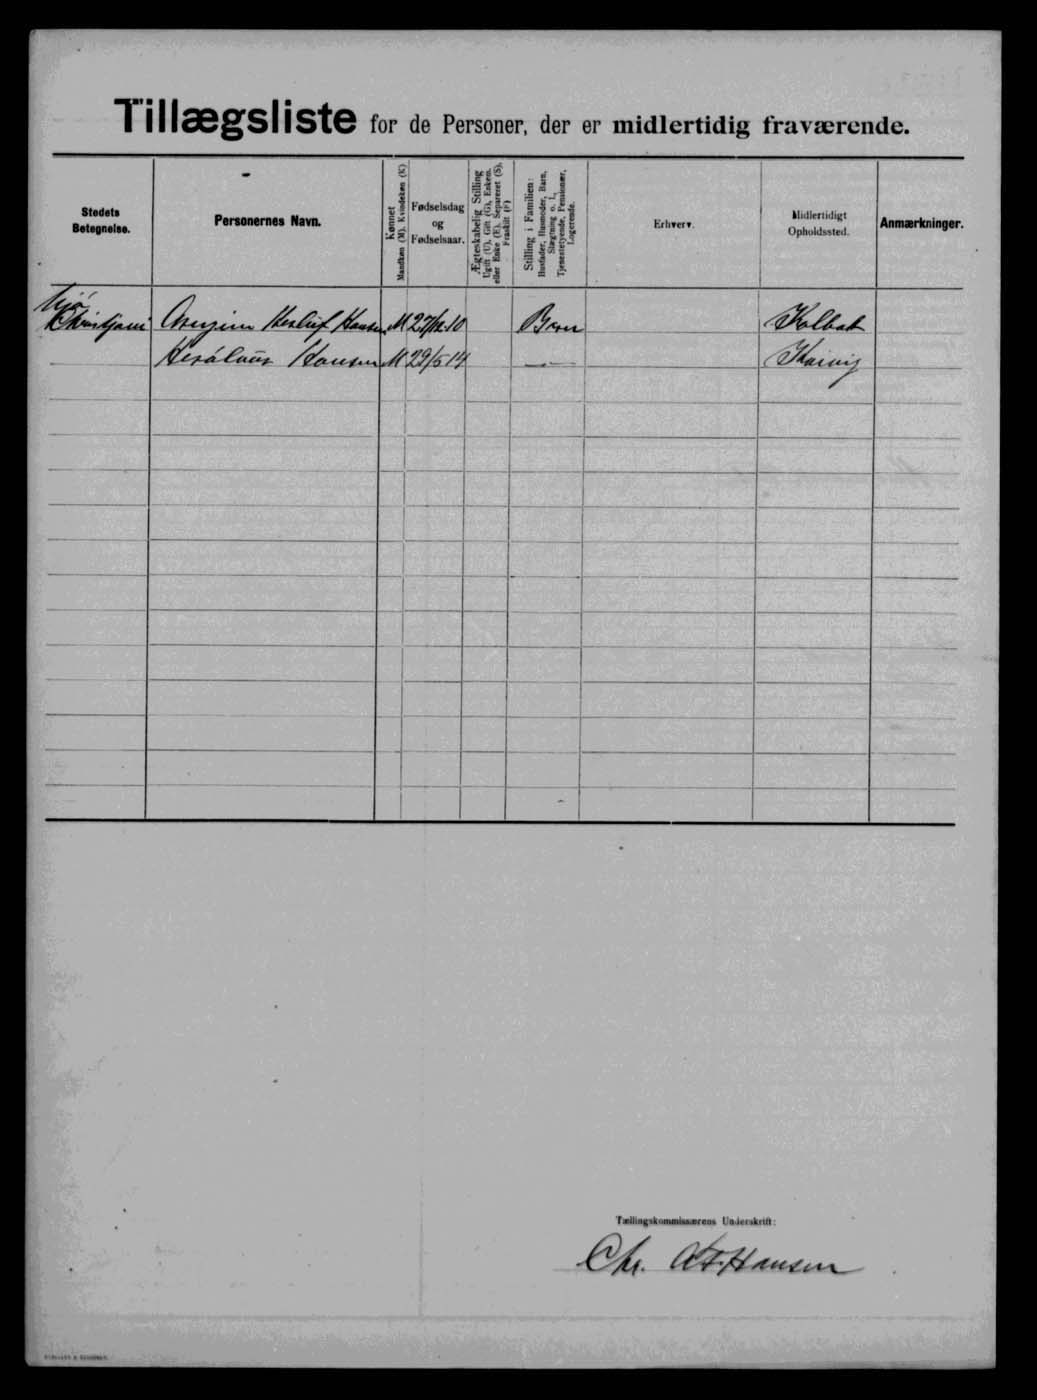 Tillægsliste for de Personer, der er midlertidig fraværende.
Stedets Betegnelse.
Personernes Navn.
Kønnet Mandkøn (M). Kvindekøn (K)
Fødselsdag og Fødselsaar.
Ægteskabelig Stilling Ugift (U), Gift (G), Enkem. eller Enke (E), Separeret (S), Fraskilt (F)
Stilling i Familien: Husfader, Husmoder, Barn, Slægtning o. l., Tjenestetyende, Pensionær, Logerende.
Erhverv.
Midlertidigt Opholdssted.
Anmærkninger.
hjá
Christjani Hansen M 27/12-10 Børn
Hansen M 29/5 14 —
Tællingskommissærens Underskrift:
Chr. Hansen